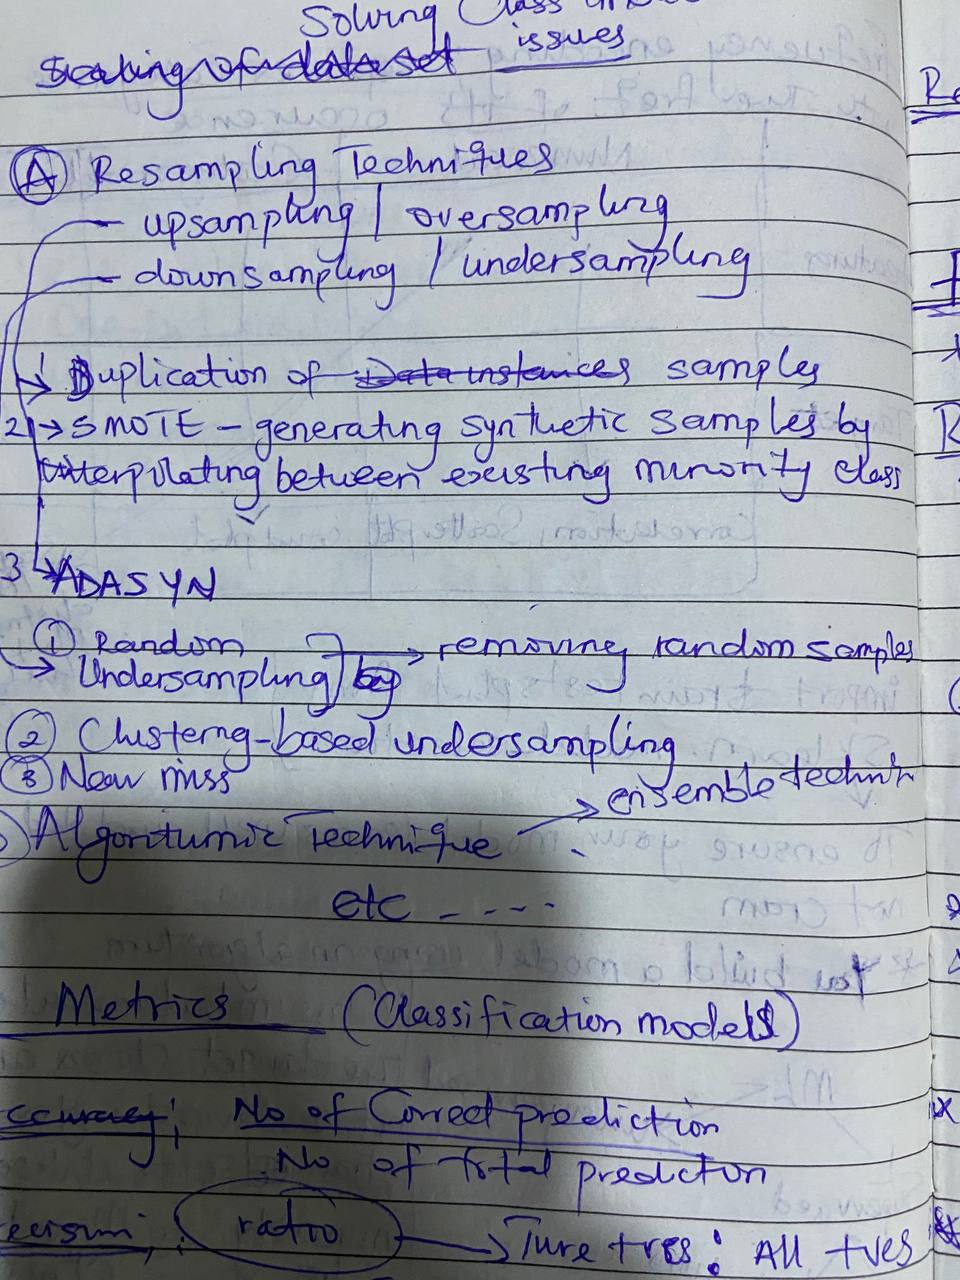 Solving Class
Scaling of dataset issues
(A) Resampling Techniques
— upsampling / oversampling
— downsampling / undersampling
1 → Duplication of Data instances samples
2 → SMOTE – generating synthetic samples by
interpolating between existing minority class
3 → ADASYN
① Random → removing random samples
→ Undersampling / by
② Clustering-based undersampling
③ Near miss
ensemble techni
Algoritumic Technique →
etc - - - -
Metrics (Classification models)
ccuracy; No of Correct prediction
No of total prediction
ratio → Ture +ves : All +ves